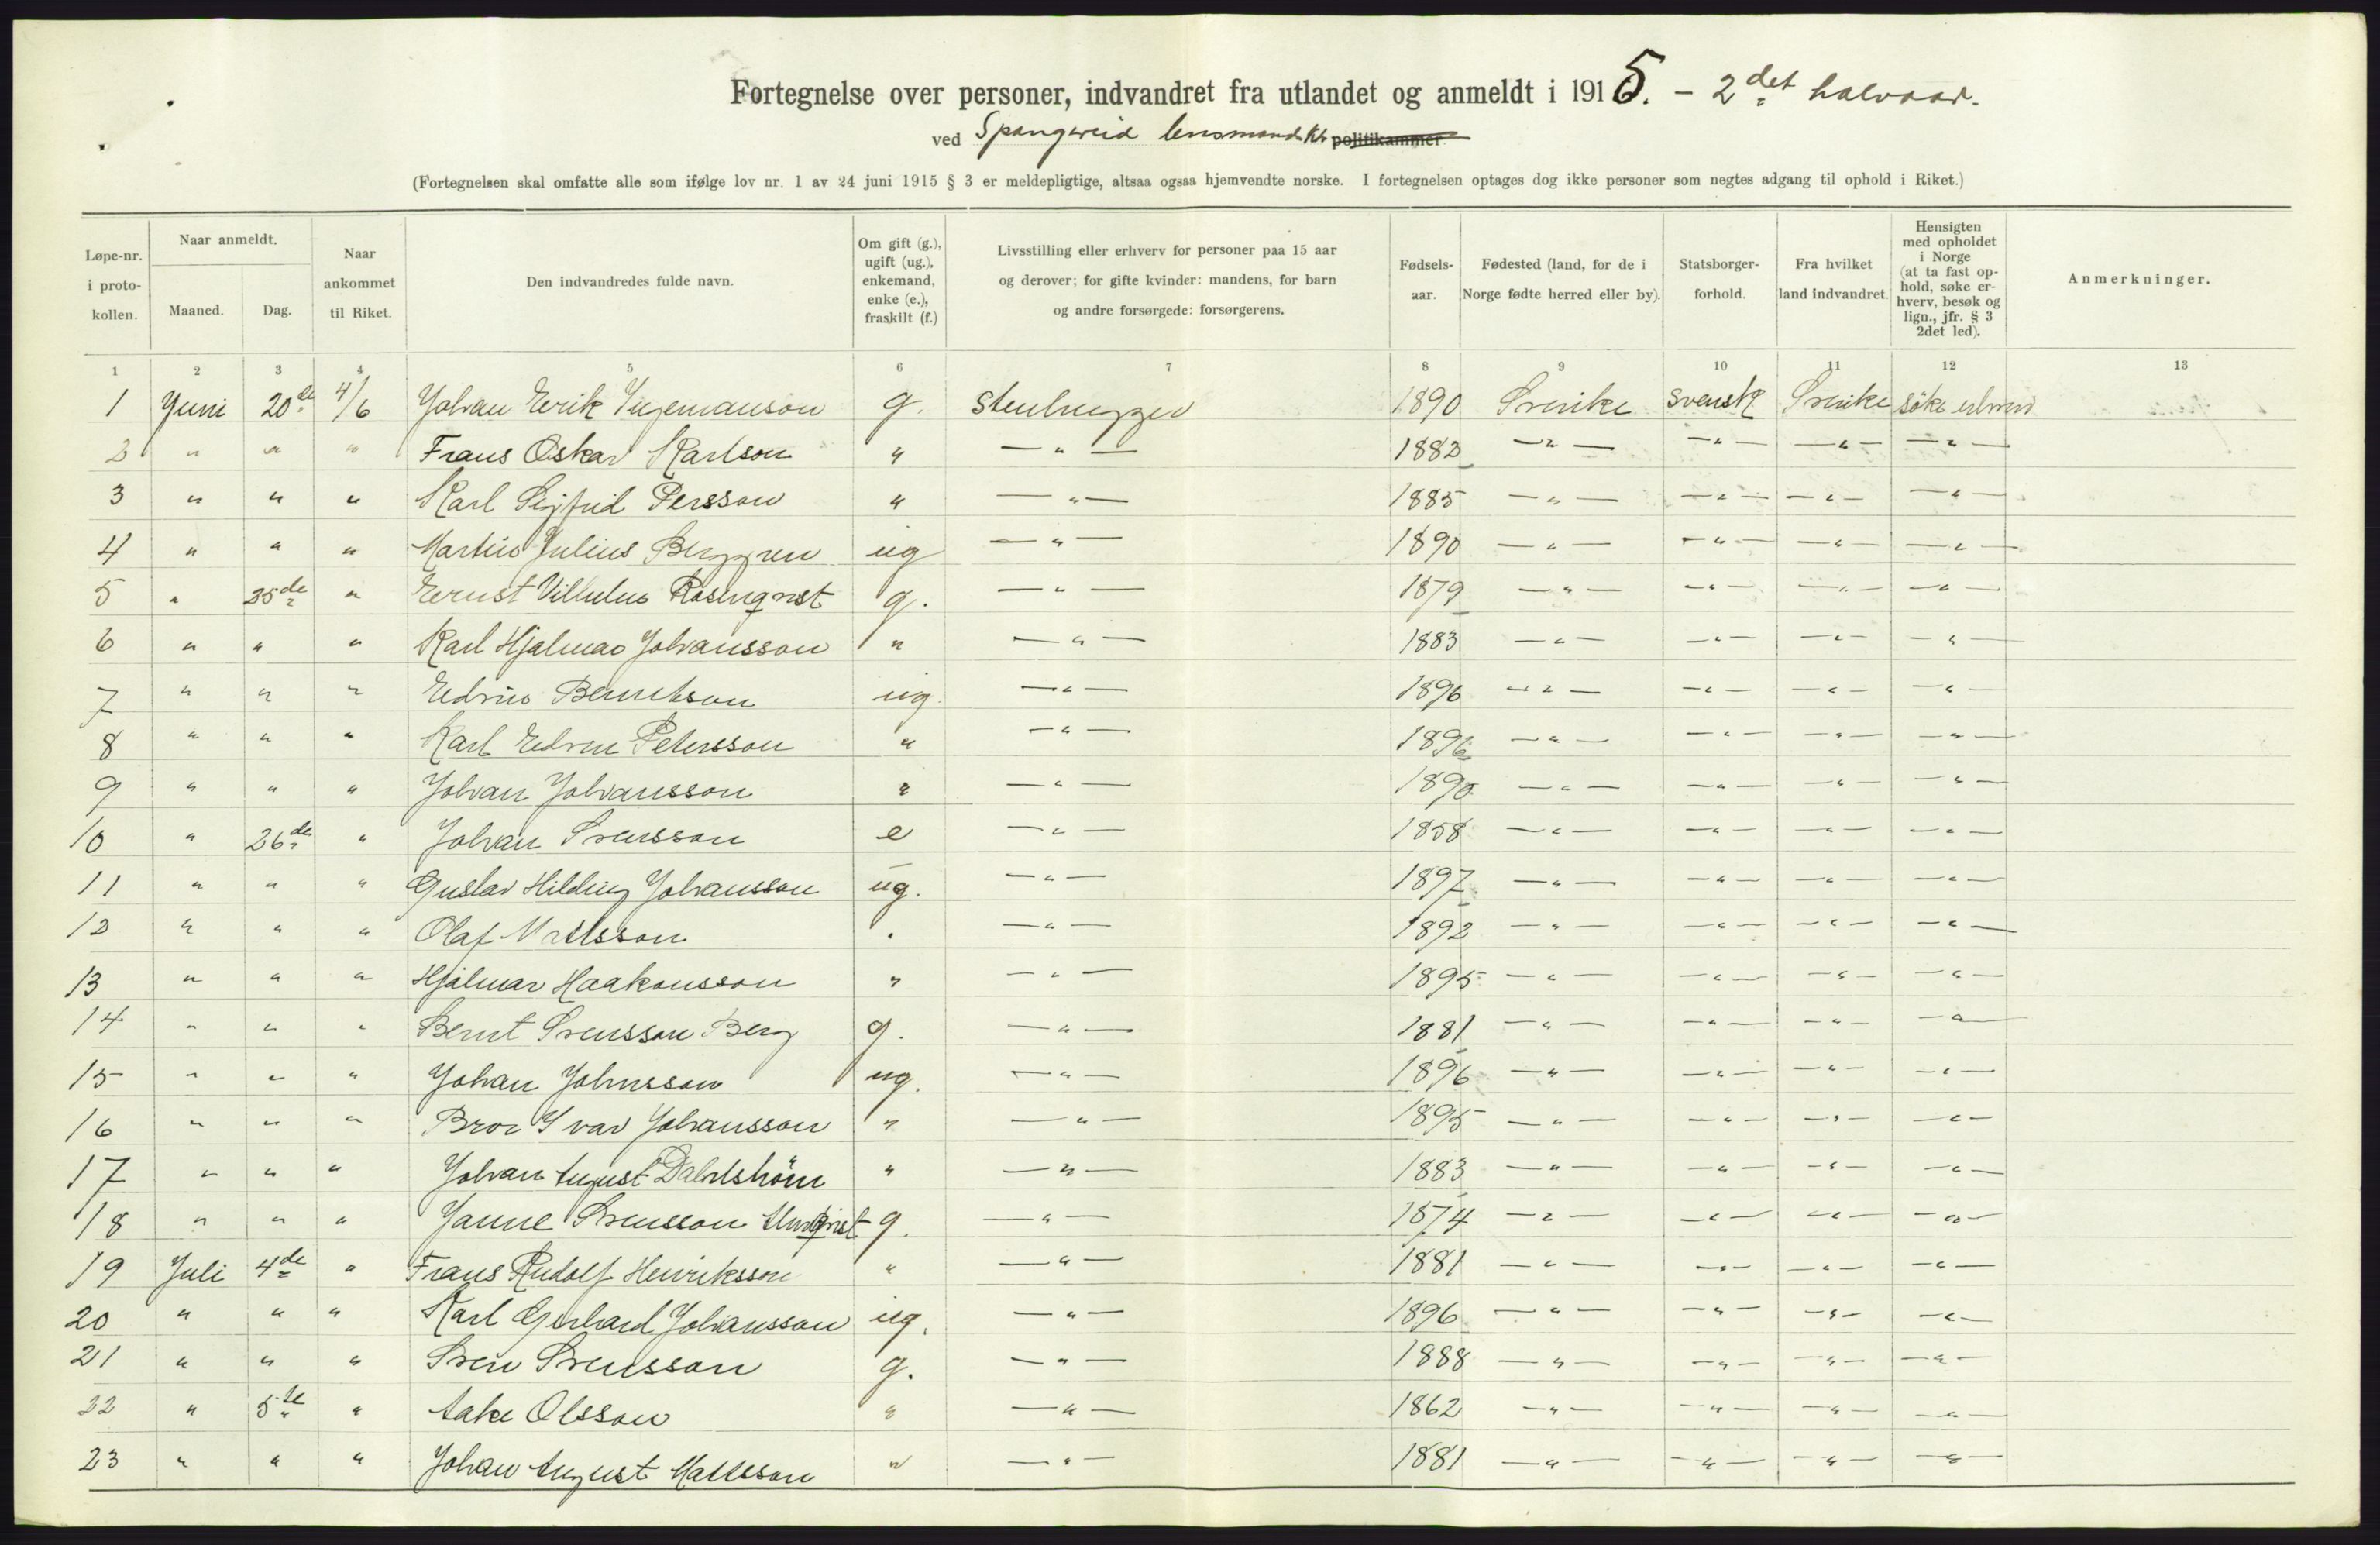 Fortegnelse over personer, indvandret fra utlandet og anmeldt i 1915. – 2det halvaar.
ved Spangereid lensmandskt politikammer
(Fortegnelsen skal omfatte alle som ifølge lov nr. 1 av 24 juni 1915 § 3 er meldepligtige, altsaa ogsaa hjemvendte norske. I fortegnelsen optages dog ikke personer som negtes adgang til ophold i Riket.)
Løpe-nr. i proto-kollen. Naar anmeldt. Maaned. Dag. Naar ankommet til Riket. Den indvandredes fulde navn. Om gift (g.), ugift (ug.), enkemand, enke (e.), fraskilt (f.) Livsstilling eller erhverv for personer paa 15 aar og derover; for gifte kvinder: mandens, for barn og andre forsørgede: forsørgerens. Fødsels-aar. Fødested (land, for de i Norge fødte herred eller by). Statsborger-forhold. Fra hvilket land indvandret. Hensigten med opholdet i Norge (at ta fast op-hold, søke er-hverv, besøk og lign., jfr. § 3 2det led). Anmerkninger.
1 2 3 4 5 6 7 8 9 10 11 12 13
1 Juni 20de 4/6 Johan Erik Ingemanson g. Stenhugger 1890 Sverike svensk Sverike söke erhverv
2 " " " Frans Oskar Karlson " — " — 1882 — " — — " — — " — — " —
3 " " " Karl Sigfrid Persson " — " — 1885 — " — — " — — " — — " —
4 " " " Martin Julius Berggren ug — " — 1890 — " — — " — — " — — " —
5 " 25de " Ernst Vilhelm Rosenqvist g. — " — 1879 — " — — " — — " — — " —
6 " " " Karl Hjalmar Johansson " — " — 1883 — " — — " — — " — — " —
7 " " " Edvin Berntsson ug. — " — 1896 — " — — " — — " — — " —
8 " " " Karl Edvin Petersson " — " — 1896 — " — — " — — " — — " —
9 " " " Johan Johansson " — " — 1890 — " — — " — — " — — " —
10 " 26de " Johan Svensson e — " — 1858 — " — — " — — " — — " —
11 " " " Gustav Hilding Johansson ug. — " — 1897 — " — — " — — " — — " —
12 " " " Olaf Mattsson " — " — 1892 — " — — " — — " — — " —
13 " " " Hjalmar Haakonsson " — " — 1895 — " — — " — — " — — " —
14 " " " Bernt Svensson Berg g. — " — 1881 — " — — " — — " — — " —
15 " " " Johan Johnsson ug. — " — 1896 — " — — " — — " — — " —
16 " " " Bror Ivar Johansson " — " — 1895 — " — — " — — " — — " —
17 " " " Johan August " — " — 1883 — " — — " — — " — — " —
18 " " " Janne Svensson g. — " — 1874 — " — — " — — " — — " —
19 Juli 4de " Frans Rudolf Henriksson " — " — 1881 — " — — " — — " — — " —
20 " " " Karl Gerhard Johansson ug. — " — 1896 — " — — " — — " — — " —
21 " " " Sven Svensson g. — " — 1888 — " — — " — — " — — " —
22 " 5te " Aake Olsson " — " — 1862 — " — — " — — " — — " —
23 " " " Johan August Mattsson " — " — 1881 — " — — " — — " — — " —